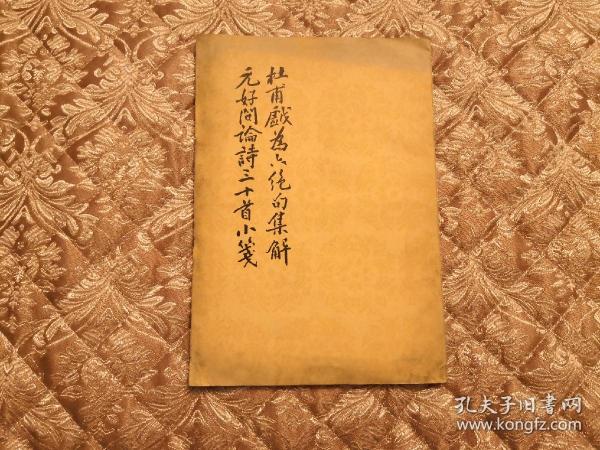 杜甫戲為六绝句集解
元好问論詩三十首小箋
孔夫子旧书网
www.kongfz.com